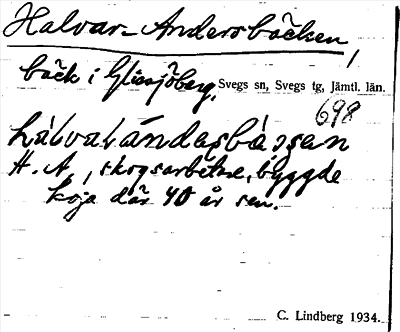 Halvar-Andersbäcken,
bäck i Glissjöberg, Svegs sn, Svegs tg, Jämtl. län.
698
hálvaŕándașbássan
H. A., skogsarbetare, byggde
koja där 40 år sen.
C. Lindberg 1934.